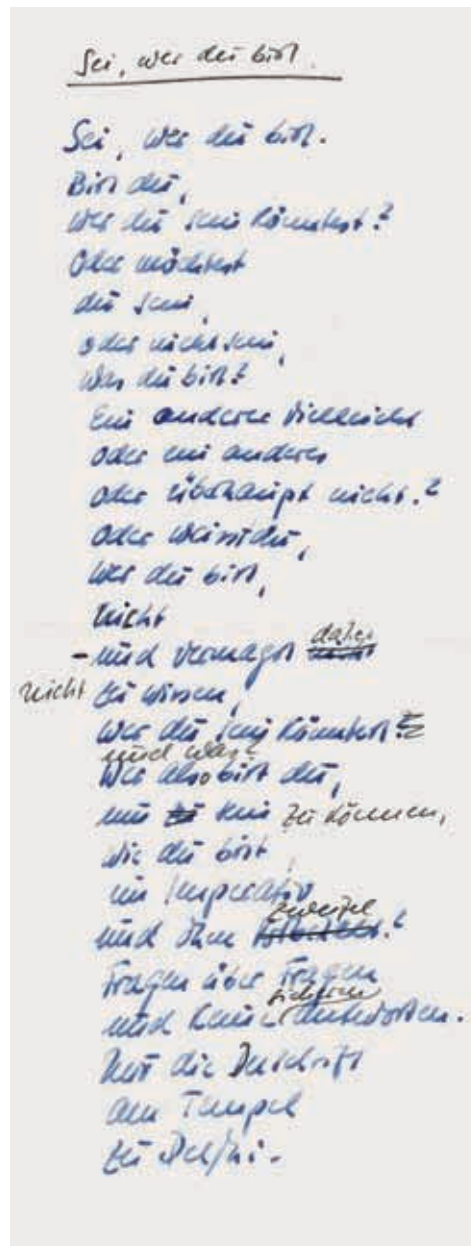 Sei, wer du bist.
Sei, wer du bist.
Bist du,
wer du sein könntest?
Oder möchtest
du sein,
oder nicht sein,
was du bist?
Ein anderer vielleicht
oder ein anderes
oder überhaupt nicht?
Oder weisst du,
wer du bist,
nicht
- und vermagst daher
nicht zu wissen,
wer du sein könntest?
und was?
Wer also bist du,
um sein zu können,
wie du bist
im Imperativ
und ohne Zweifel?
Fragen über Fragen
und keine sicheren Antworten.
Nur die Inschrift
am Tempel
zu Delphi.